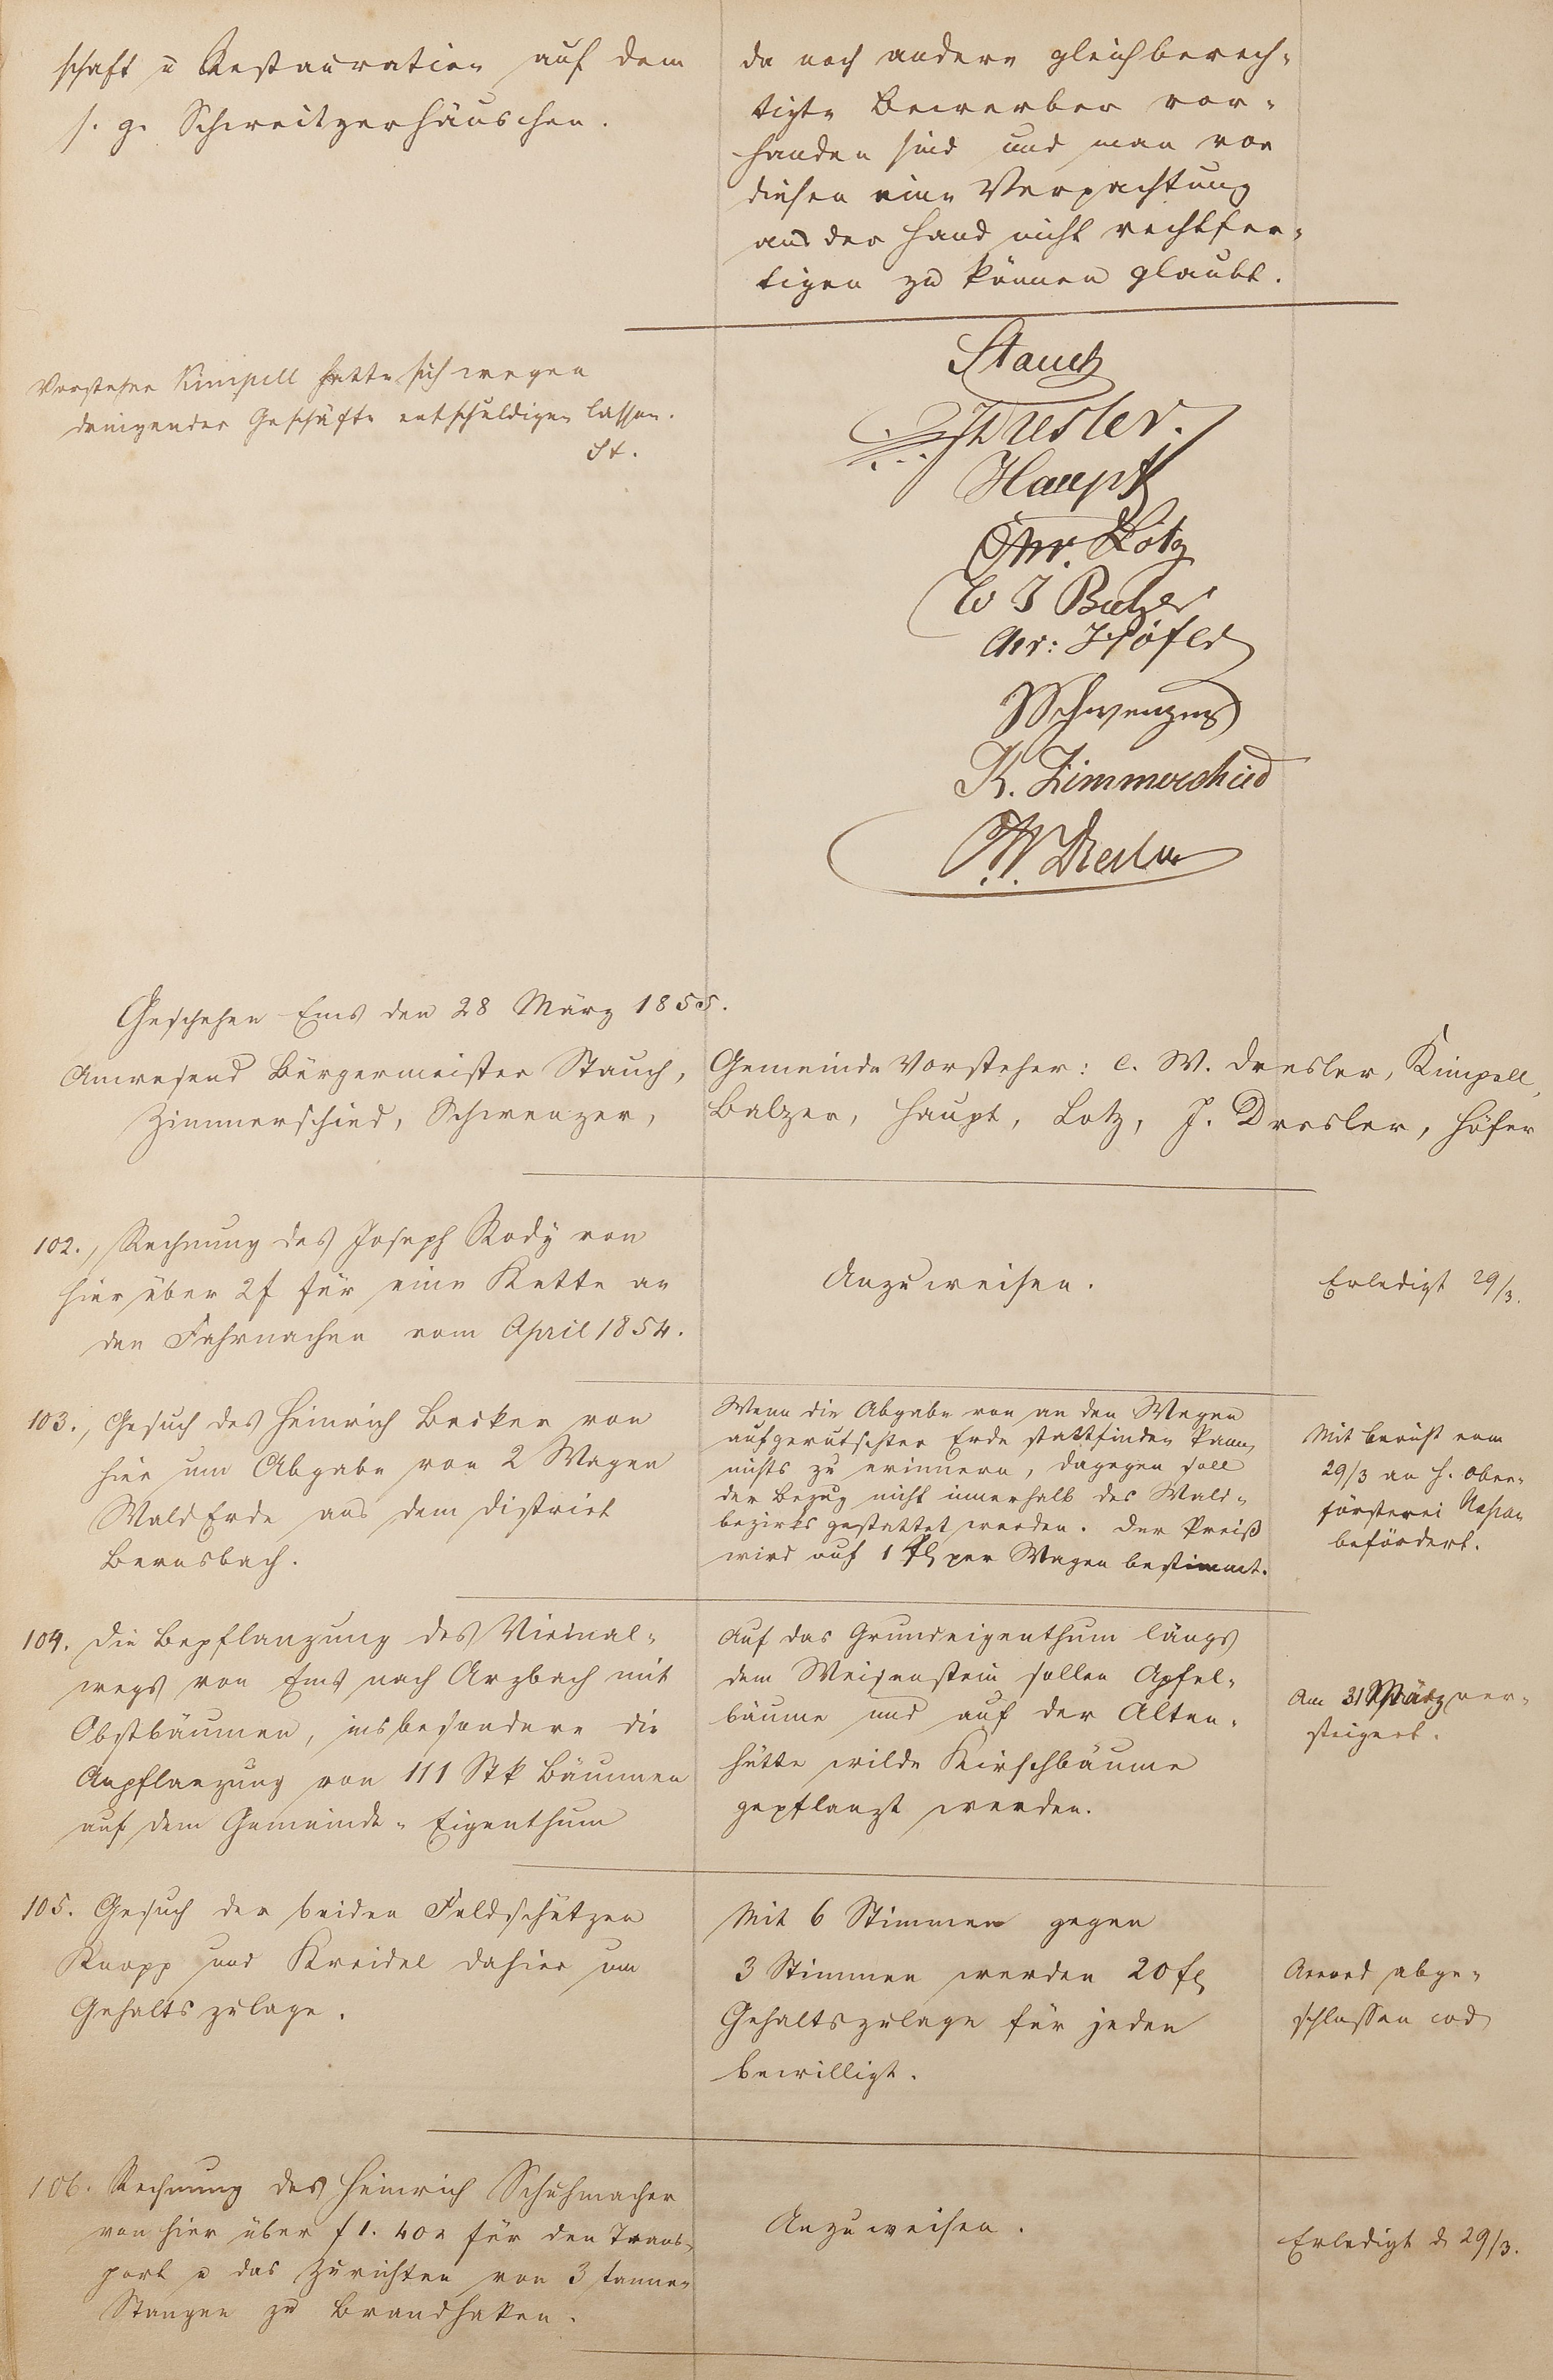 schaft u Restauration auf dem
s. g. Schweitzerhäuschen.
da noch andere gleichberech-
tigte Bewerber vor-
handen sind und man vor
diesen eine Verpachtung
aus der Hand nicht rechtfer-
tigen zu können glaubt.
Vorsteher Kimpell hatte sich wegen
dringender Geschäfte entschuldigen lassen.
St.
Stauch
Dresler.
Haupt
Chr. Lotz
W J Balzer
Höfer
Schwenzer
K. Zimmerschied
W. Dresler
Geschehen Ems den 28 März 1855.
Anwesend Bürgermeister Stauch, Gemeinde Vorsteher: C. W. Dresler, Kimpell,
Zimmerschied, Schwenzer, Balzer, Haupt, Lotz, J. Dresler, Höfer
102., Rechnung des Joseph Rody von
hier über 2 f für eine Kette an
den Fahrnachen vom April 1854.
Anzuweisen.
Erledigt 29/3.
103., Gesuch des Heinrich Becker von
hier um Abgabe von 2 Wagen
Wald Erde aus dem District
Bernsbach.
Wenn die Abgabe von an den Wegen
aufgerutschter Erde stattfinden kann,
nichts zu erinnern, dagegen soll
der Bezug nicht innerhalb des Wald-
bezirks gestattet werden. Der Preiß
wird auf 1 fl per Wagen bestimmt.
Mit Bericht vom
29/3 an H. Ober-
försterei Nassau
befördert.
104. Die Bepflanzung des Vicinal-
wegs von Ems nach Arzbach mit
Obstbäumen, insbesondere die
Anpflanzung von 111 Stk Bäumen
auf dem Gemeinde-Eigenthum
Auf das Grundeigenthum längs
dem Weisenstein sollen Apfel-
bäume und auf der Alten-
hütte wilde Kirschbäume
gepflanzt werden.
Am 31 März ver-
steigert.
105. Gesuch der beiden Feldschützen
Knopp und Kreidel dahier um
Gehaltszulage.
Mit 6 Stimmen gegen
3 Stimmen werden 20 fl
Gehaltszulage für jeden
bewilligt.
Accord abge-
schlossen cod
106. Rechnung des Heinrich Schuhmacher
von hier über f 1. 40 x für den Trans-
port u das Zurichten von 3 tannen
Stangen zu Brandhaken.
Anzuweisen.
Erledigt d 29/3.